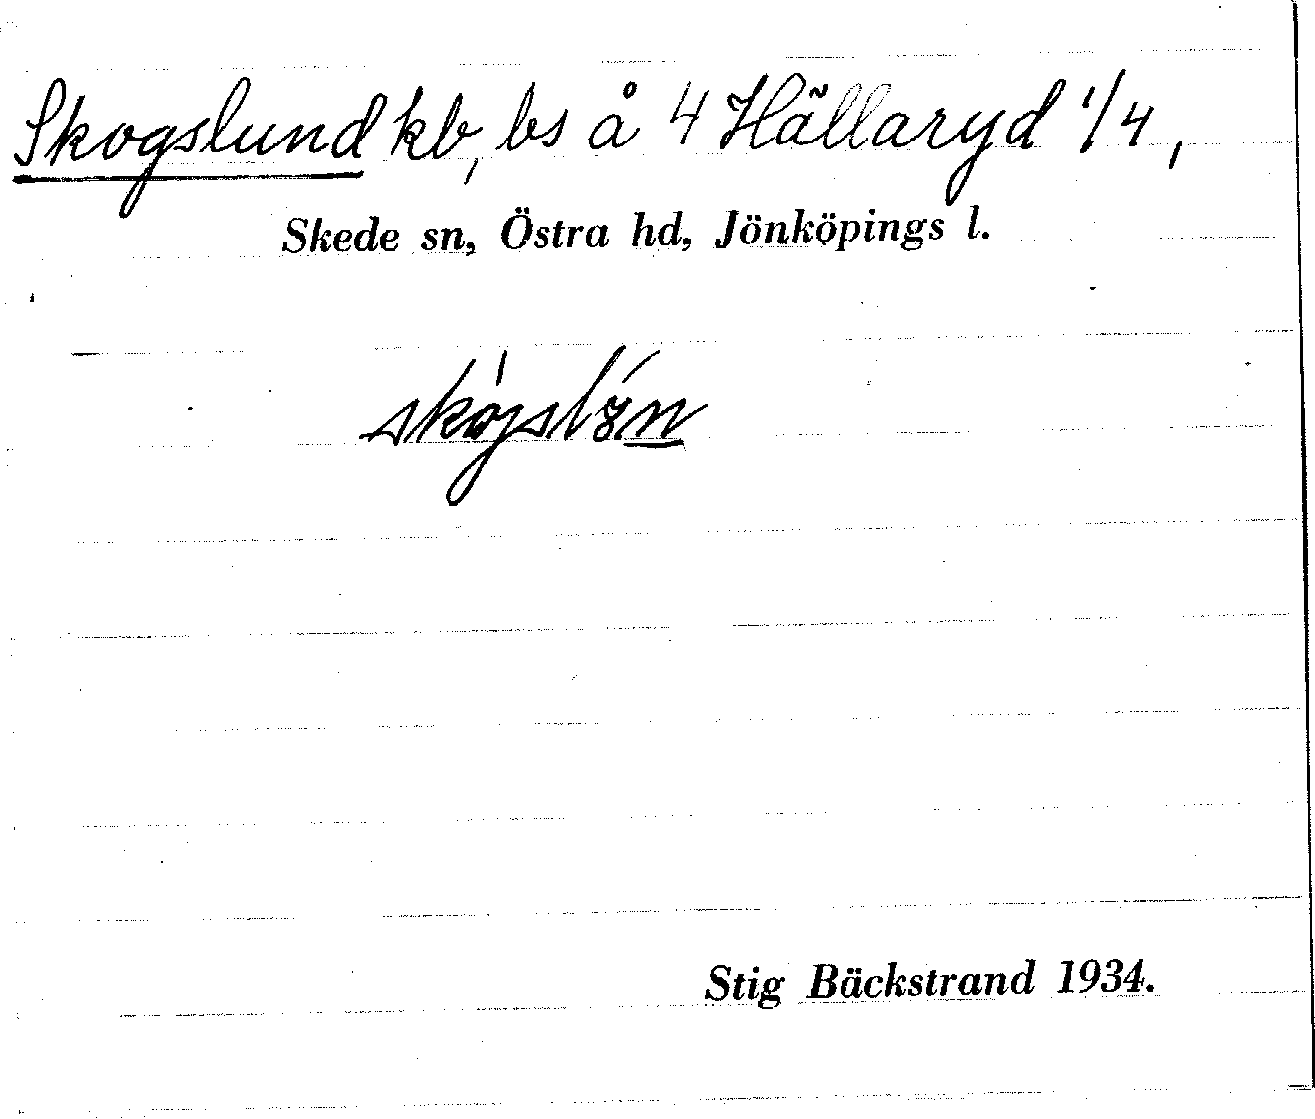 Skogslund kb, bs å 4 Hällaryd 1/4,
Skede sn, Östra hd, Jönköpings l.
Stig Bäckstrand 1934.